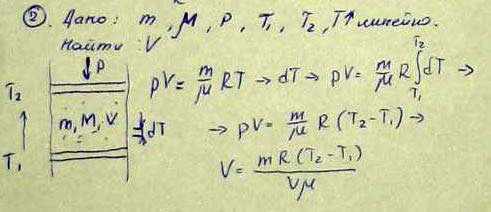 ② Дано: m, μ, P, T₁, T₂, T↑ линейно.
Найти: V
↓P
T₂
m, M, V
dT
T₁
pV = m/μ RT → dT → pV = m/μ R ∫_{T₁}^{T₂} dT →
→ pV = m/μ R (T₂ - T₁) →
V = mR(T₂ - T₁) / Vμ